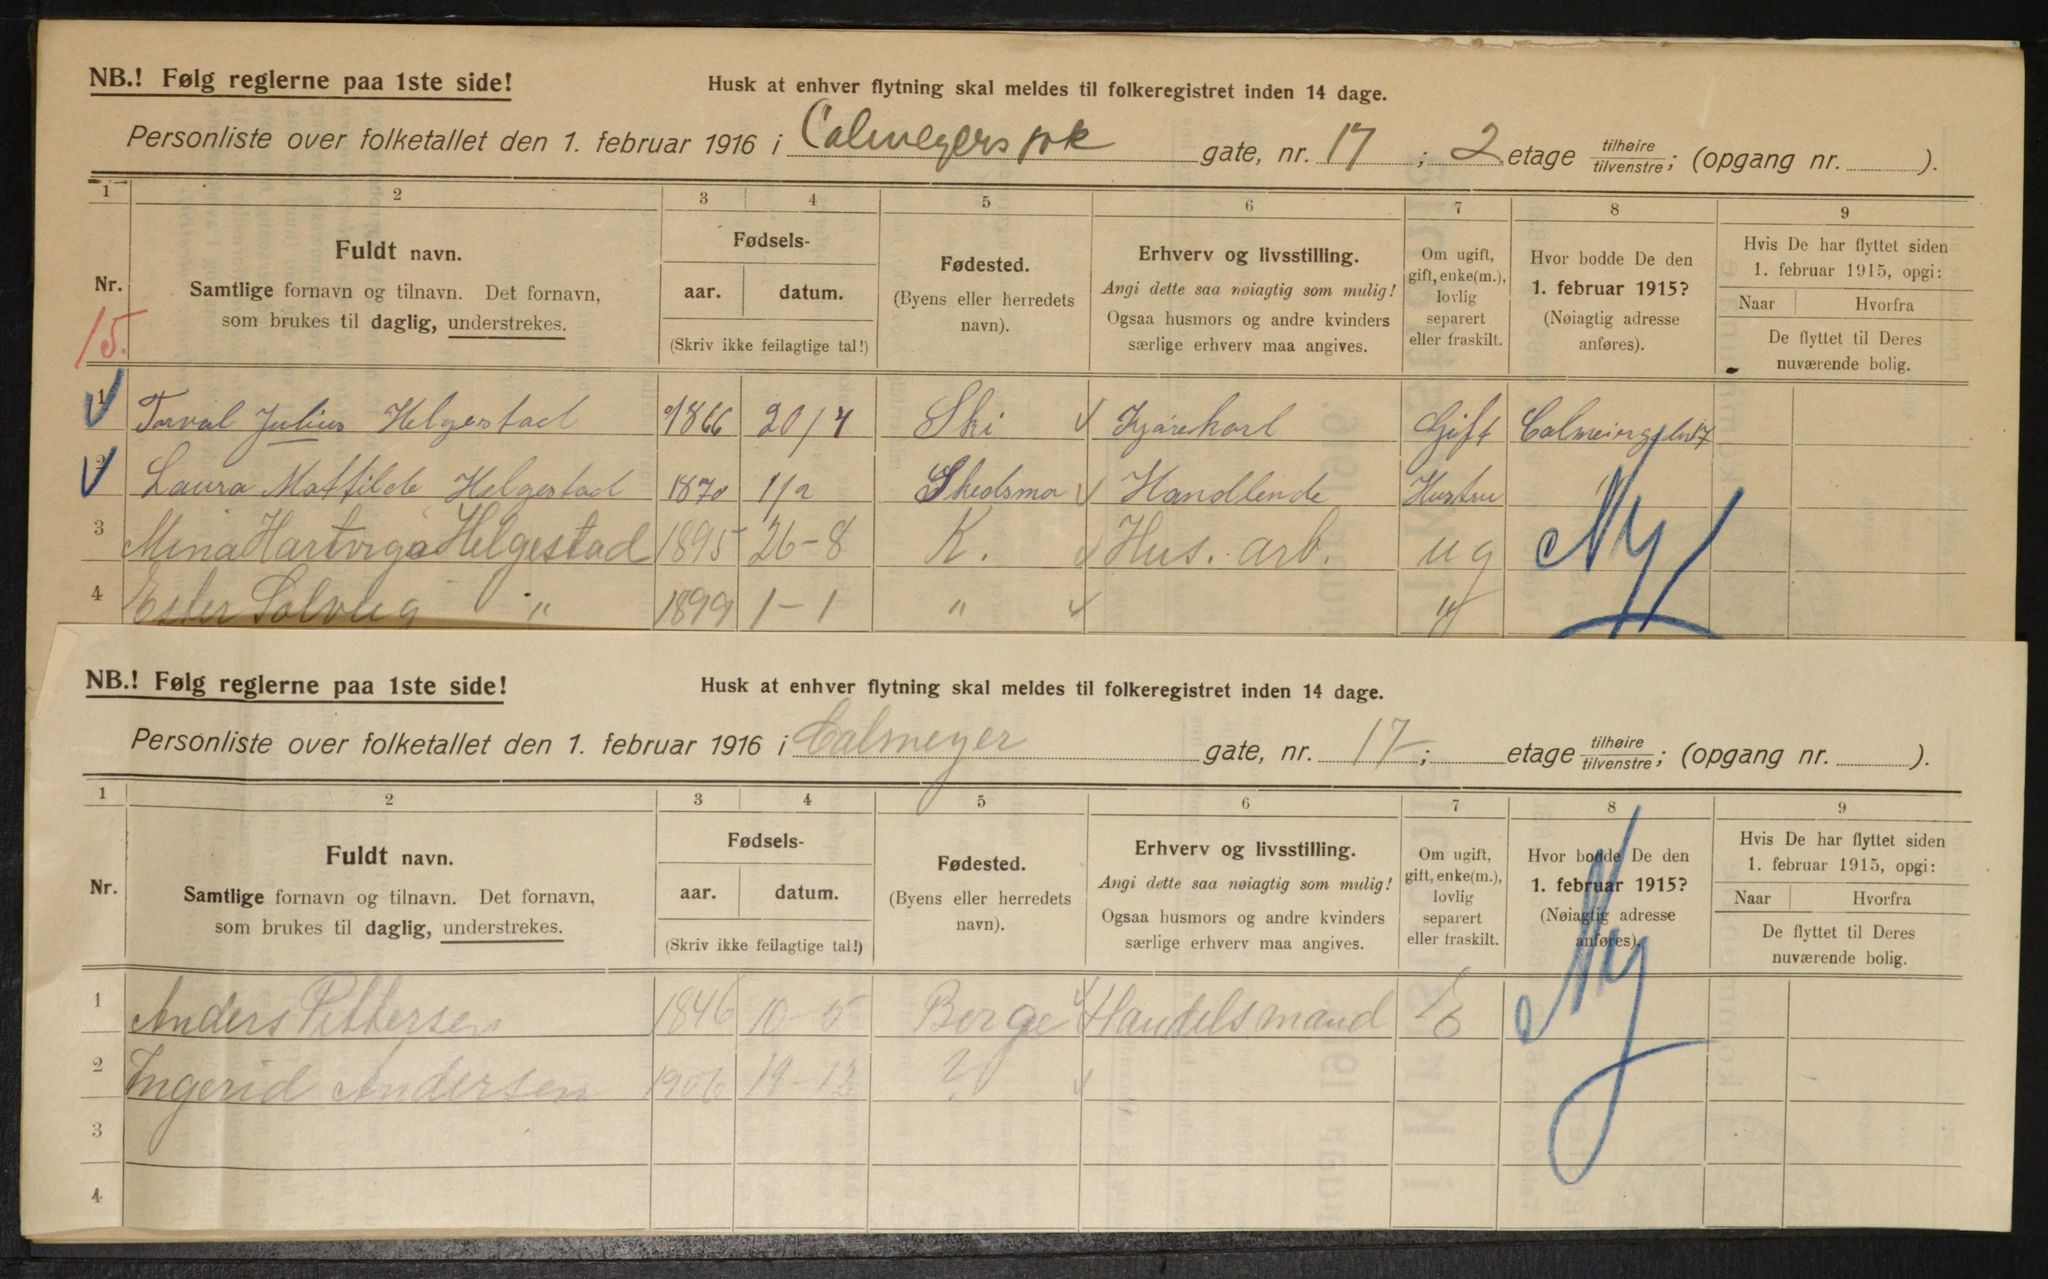 NB.! Følg reglerne paa 1ste side!
Husk at enhver flytning skal meldes til folkeregistret inden 14 dage.
Personliste over folketallet den 1. februar 1916 i Calmeyers gate, nr. 17 ; 2 etage tilhøire/tilvenstre; (opgang nr. ).
1 2 3 4 5 6 7 8 9
Nr.
15.
Fuldt navn.
Samtlige fornavn og tilnavn. Det fornavn,
som brukes til daglig, understrekes.
Fødsels-
aar. datum.
(Skriv ikke feilagtige tal!)
Fødested.
(Byens eller herredets
navn).
Erhverv og livsstilling.
Angi dette saa nøiagtig som mulig!
Ogsaa husmors og andre kvinders
særlige erhverv maa angives.
Om ugift,
gift, enke(m.),
lovlig
separert
eller fraskilt.
Hvor bodde De den
1. februar 1915?
(Nøiagtig adresse
anføres).
Hvis De har flyttet siden
1. februar 1915, opgi:
Naar Hvorfra
De flyttet til Deres
nuværende bolig.
1 Torval Julius Helgestad 1866 20/4 Ski Kjørekarl Gift
2 Laura Matfilde Helgestad 1870 1/2 Skedsmo Handlende Hustru "
3 Mina Hartviga Helgestad 1895 26-8 K. Hus. arb. ug Ny
4 Ester Solveig " 1899 1-1 " "
NB.! Følg reglerne paa 1ste side!
Husk at enhver flytning skal meldes til folkeregistret inden 14 dage.
Personliste over folketallet den 1. februar 1916 i Calmeyer gate, nr. 17 ; etage tilhøire/tilvenstre; (opgang nr. ).
1 2 3 4 5 6 7 8 9
Nr.
Fuldt navn.
Samtlige fornavn og tilnavn. Det fornavn,
som brukes til daglig, understrekes.
Fødsels-
aar. datum.
(Skriv ikke feilagtige tal!)
Fødested.
(Byens eller herredets
navn).
Erhverv og livsstilling.
Angi dette saa nøiagtig som mulig!
Ogsaa husmors og andre kvinders
særlige erhverv maa angives.
Om ugift,
gift, enke(m.),
lovlig
separert
eller fraskilt.
Hvor bodde De den
1. februar 1915?
(Nøiagtig adresse
anføres).
Hvis De har flyttet siden
1. februar 1915, opgi:
Naar Hvorfra
De flyttet til Deres
nuværende bolig.
1 Anders Pettersen 1846 10-5 Borge Handelsmand E Ny
2 Ingerid Andersen 1906 19-12 ?
3
4